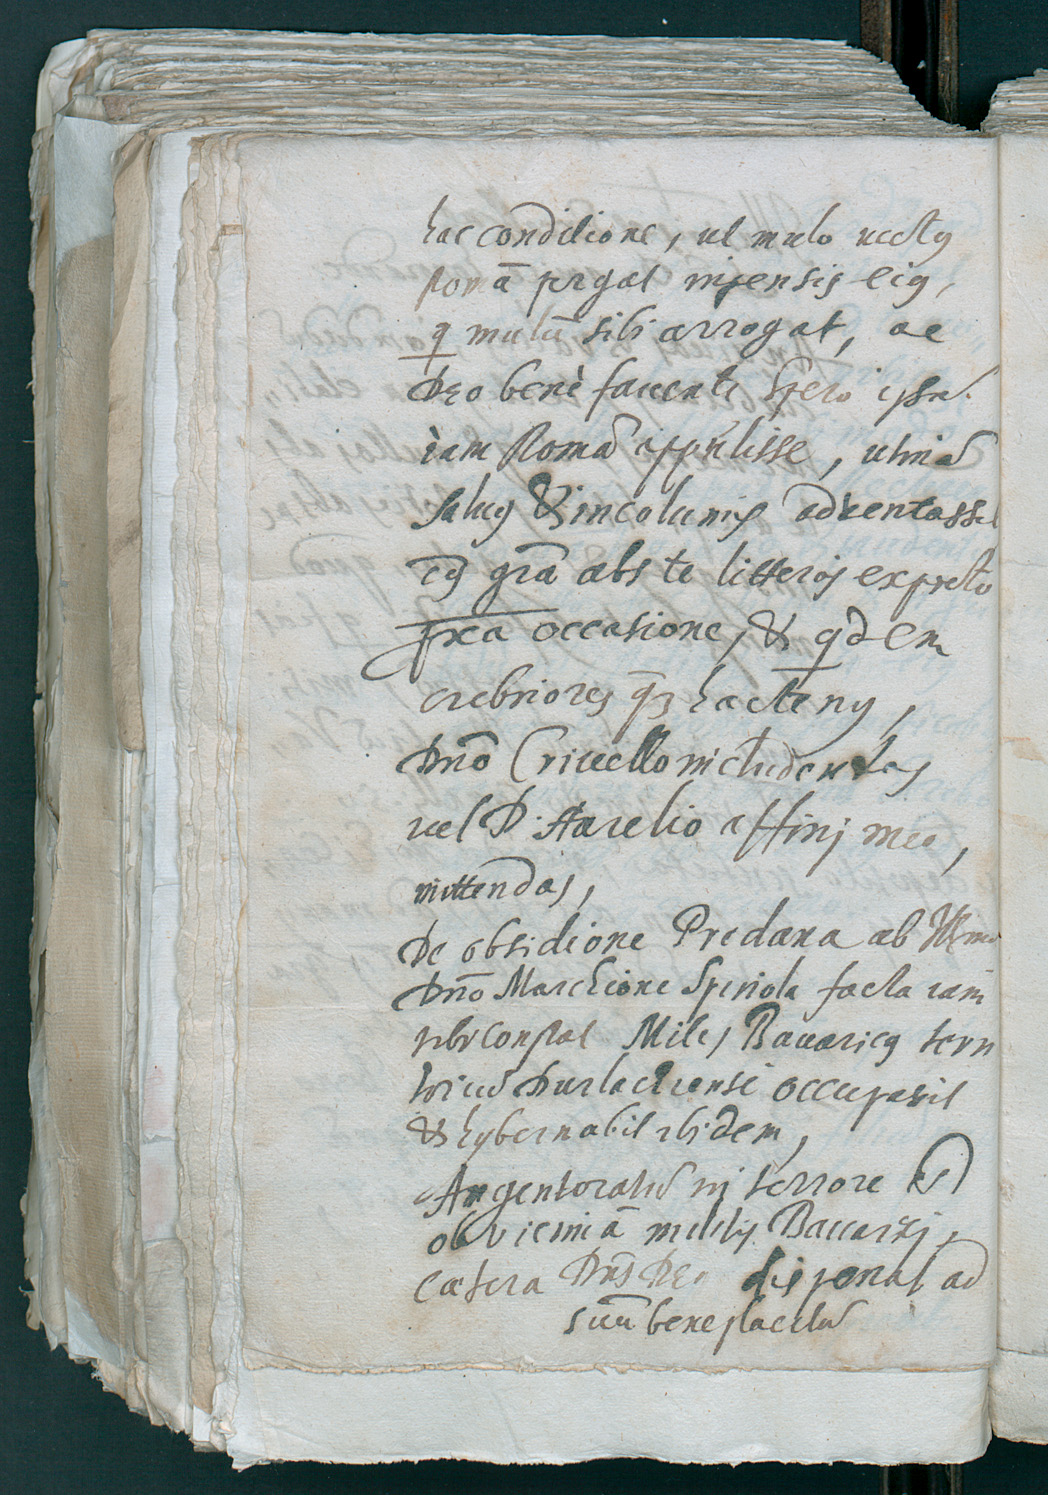 hac conditione, ut mulo vectus
Romā pergat impensis eius,
q multū sibi arrogat, ac
Deo benè favente spero ipsū
iam Romā appulisse, utinā
salvus & incolumis adventasset
cuius grā abs te litteras expecto
pr̄xa occasione, & qdem
crebriores q̃ hactenus,
Dnō Crivello includendas
vel D. Aurelio affini meo,
mittendas,
De obsidione Predana ab Illmo
Dnō Marchione Spinola facta iam
tibi constat Miles Bavaricus terri
toriū Durlachense occupavit
& hybernabit ibidem,
Argentoratū in terrore est
ob viciniā militis Bavarici,
Cætera Dns̄ Deus disponat ad
suū beneplacitū